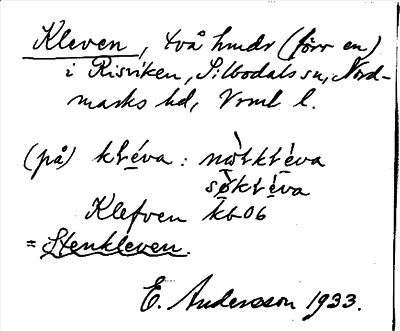 Kleven, två hmdr (förr en)
i Risviken, Silbodals sn, Nord-
marks hd, Vrml l.
(på) kléva : nòlkléva
søkléva
Klefven kb 06
= Stenkleven.
E. Andersson 1933.